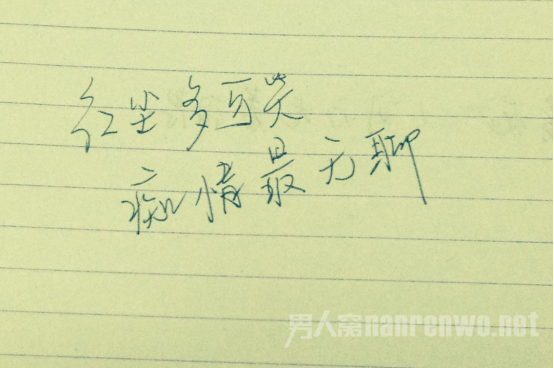 红尘多可笑
痴情最无聊
男人窝nanrenwo.net